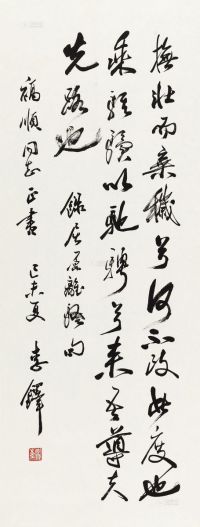 撫壯而棄穢兮何不改此度也
乘騏驥以馳騁兮来吾導夫
先路也 錄屈原離騷句
福順同志正書 己未夏 李鐸